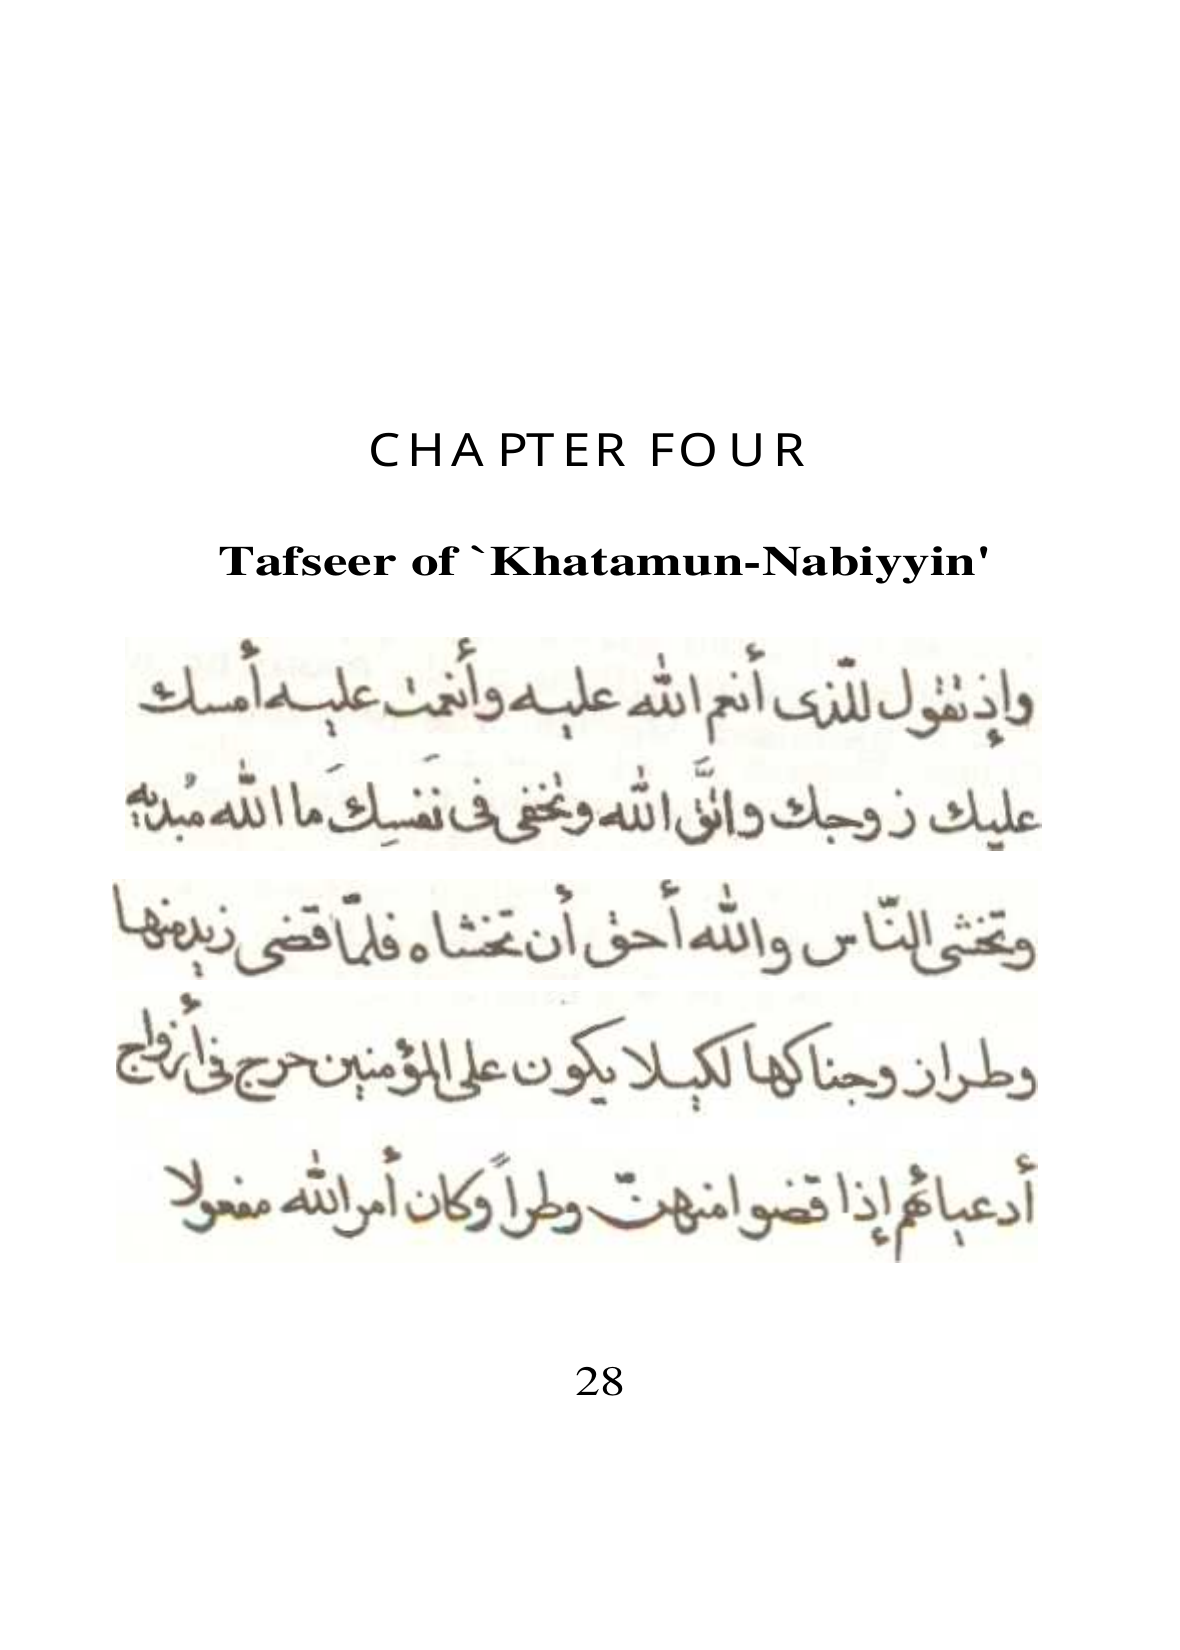 CHAPTER FOUR
Tafseer of `Khatamun-Nabiyyin'
وإذ تقول للّذى أنعم الله عليه وأنعمت عليه أمسك
عليك زوجك واتَّق الله وتخفى فى نَفسِكَ ما الله مُبديه
وتخشى النّاس والله أحق أن تخشاه فلمّا قضى زيد منها
وطرا زوجناكها لكيلا يكون على المؤمنين حرج فى أزواج
أدعيائهم إذا قضوا منهنّ وطراً وكان أمر الله مفعولا
28